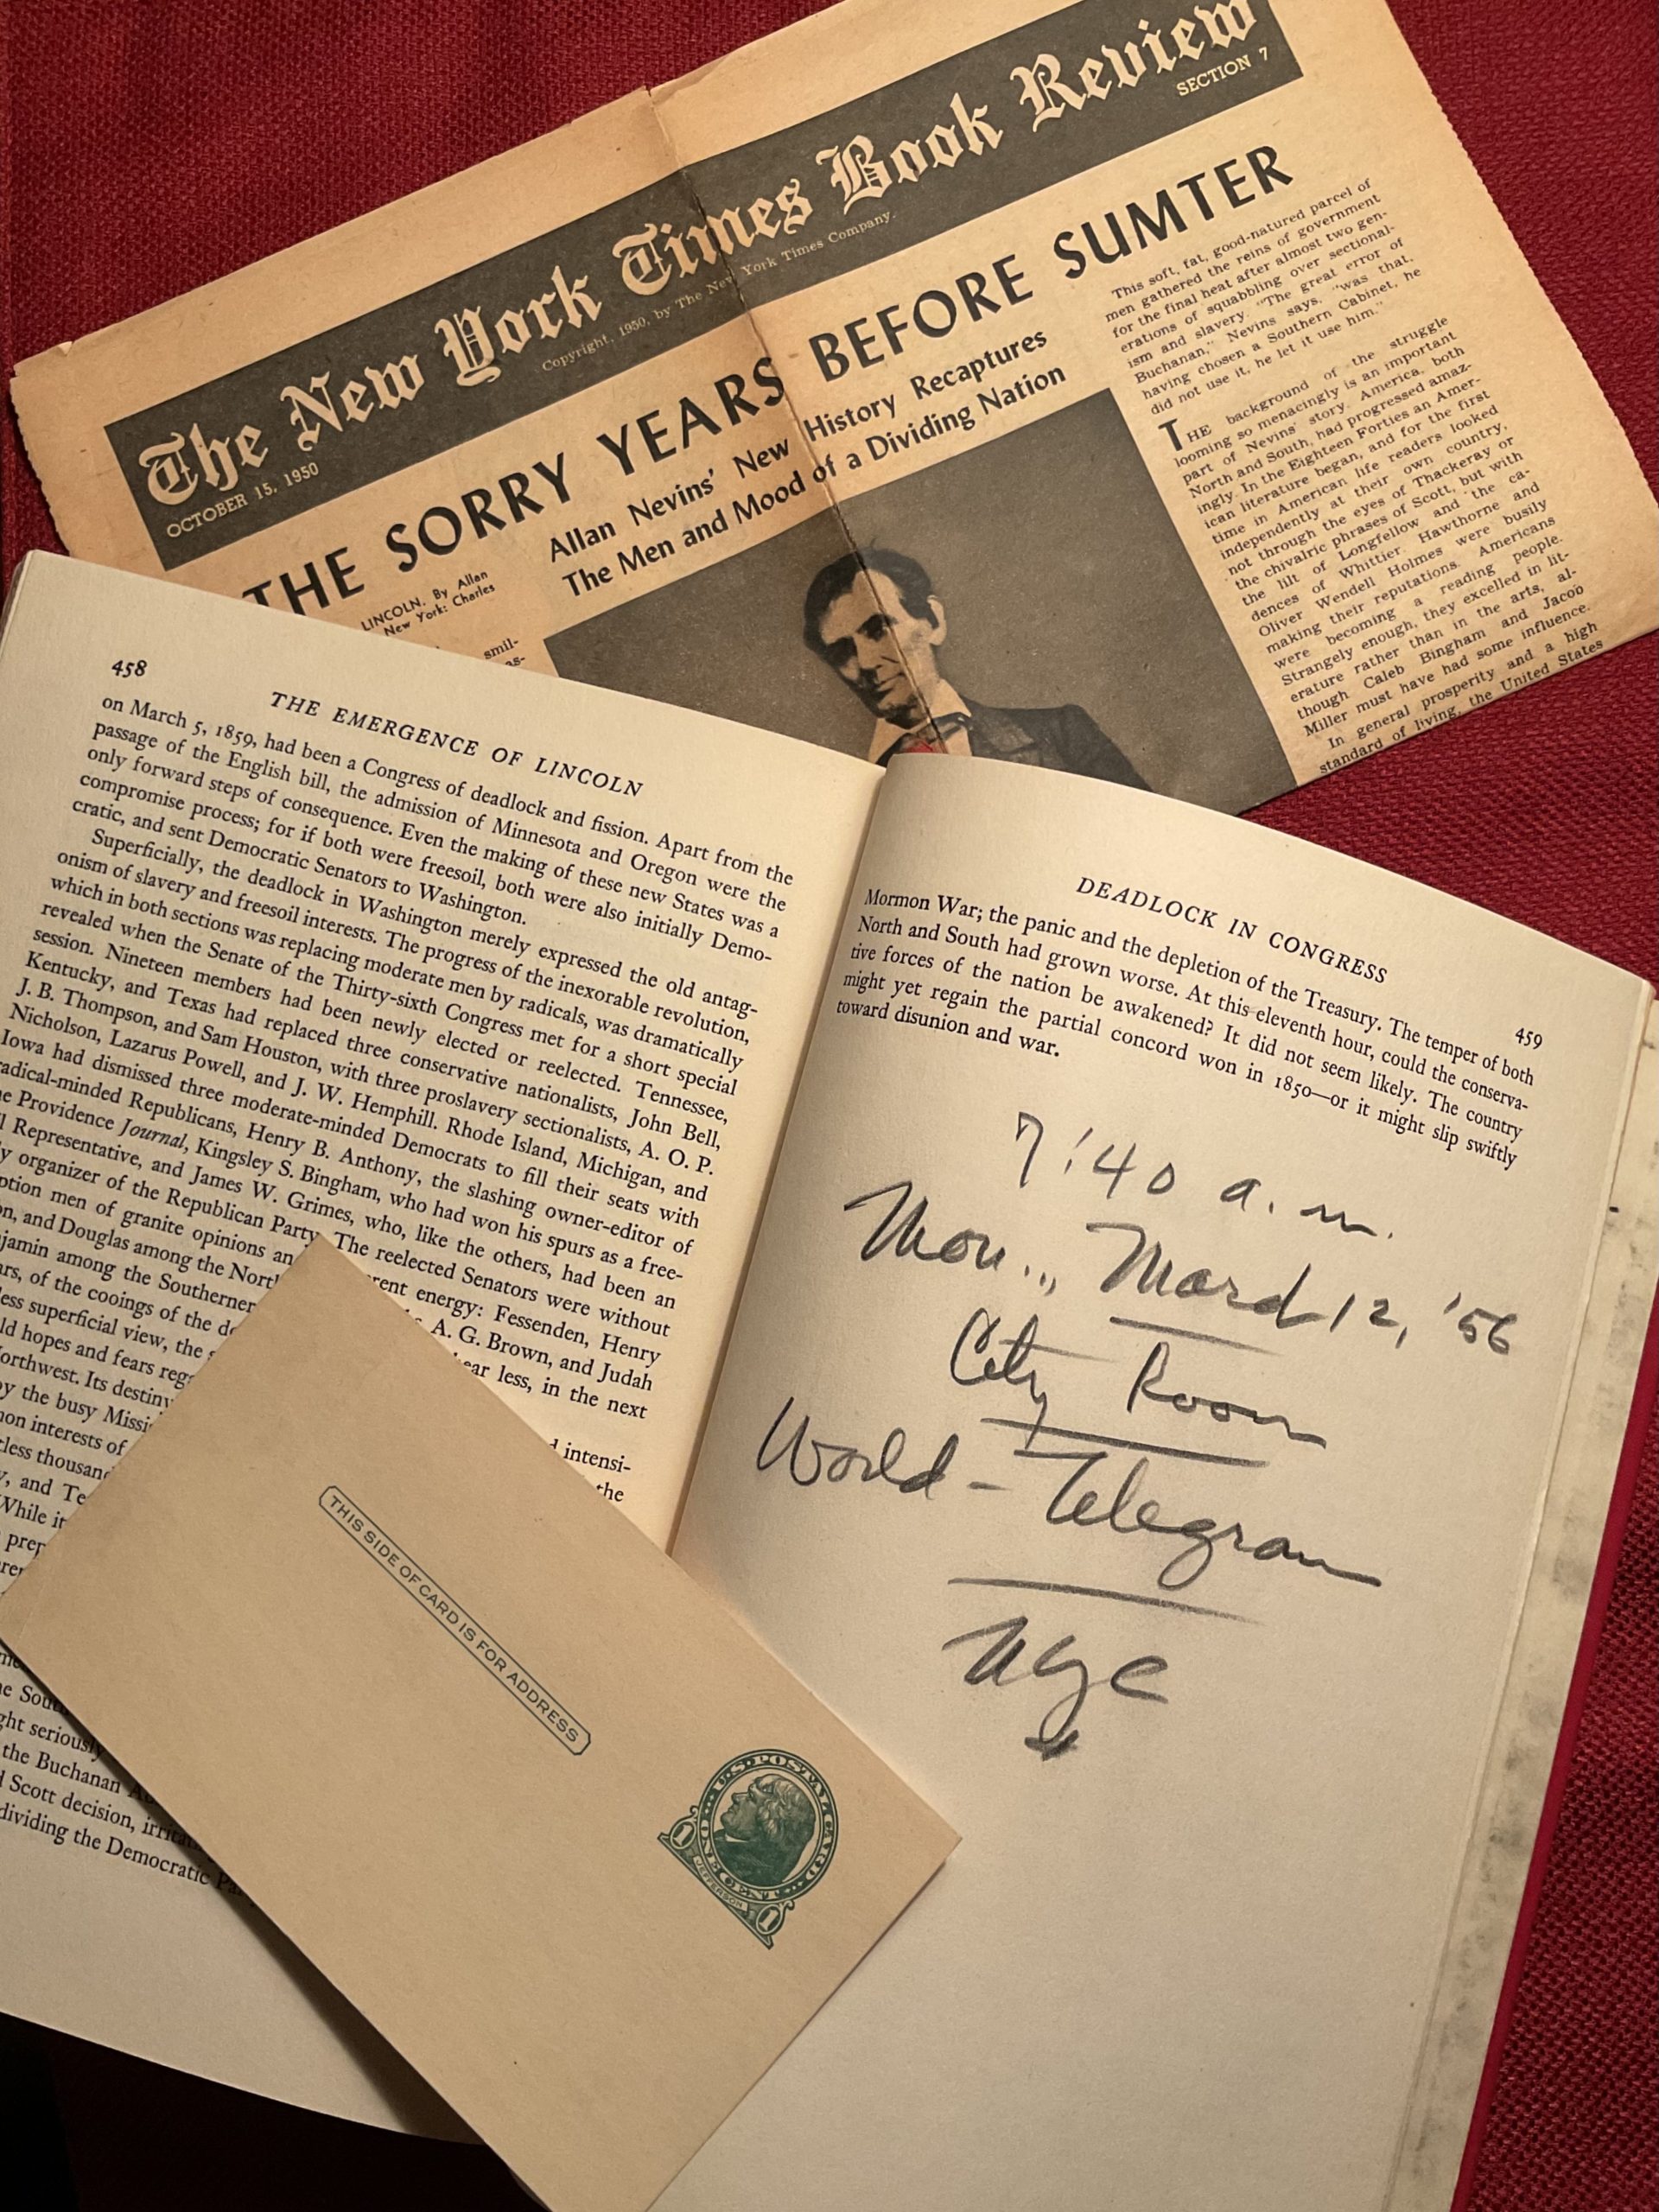 The New York Times Book Review
SECTION 7
OCTOBER 15, 1950
Copyright, 1950, by The New York Times Company.
THE SORRY YEARS BEFORE SUMTER
Allan Nevins' New History Recaptures
The Men and Mood of a Dividing Nation
LINCOLN. By Allan
New York: Charles
smil-
as-
This soft, fat, good-natured parcel of
men gathered the reins of government
for the final heat after almost two gen-
erations of squabbling over sectional-
ism and slavery. "The great error of
Buchanan," Nevins says, "was that,
having chosen a Southern Cabinet, he
did not use it, he let it use him."
THE background of the struggle
looming so menacingly is an important
part of Nevins' story. America, both
North and South, had progressed amaz-
ingly. In the Eighteen Forties an Amer-
ican literature began, and for the first
time in American life readers looked
independently at their own country,
not through the eyes of Thackeray or
the chivalric phrases of Scott, but with
the lilt of Longfellow and the ca-
dences of Whittier. Hawthorne and
Oliver Wendell Holmes were busily
making their reputations. Americans
were becoming a reading people.
Strangely enough, they excelled in lit-
erature rather than in the arts, al-
though Caleb Bingham and Jacob
Miller must have had some influence.
In general prosperity and a high
standard of living, the United States
458
THE EMERGENCE OF LINCOLN
on March 5, 1859, had been a Congress of deadlock and fission. Apart from the
passage of the English bill, the admission of Minnesota and Oregon were the
only forward steps of consequence. Even the making of these new States was a
compromise process; for if both were freesoil, both were also initially Demo-
cratic, and sent Democratic Senators to Washington.
Superficially, the deadlock in Washington merely expressed the old antag-
onism of slavery and freesoil interests. The progress of the inexorable revolution,
which in both sections was replacing moderate men by radicals, was dramatically
revealed when the Senate of the Thirty-sixth Congress met for a short special
session. Nineteen members had been newly elected or reelected. Tennessee,
Kentucky, and Texas had replaced three conservative nationalists, John Bell,
J. B. Thompson, and Sam Houston, with three proslavery sectionalists, A. O. P.
Nicholson, Lazarus Powell, and J. W. Hemphill. Rhode Island, Michigan, and
Iowa had dismissed three moderate-minded Democrats to fill their seats with
radical-minded Republicans, Henry B. Anthony, the slashing owner-editor of
the Providence Journal, Kingsley S. Bingham, who had won his spurs as a free-
l Representative, and James W. Grimes, who, like the others, had been an
y organizer of the Republican Party. The reelected Senators were without
ption men of granite opinions an rent energy: Fessenden, Henry
on, and Douglas among the North A. G. Brown, and Judah
jamin among the Southerner ear less, in the next
ars, of the cooings of the
less superficial view, the intensi-
ld hopes and fears reg the
orthwest. Its destiny
by the busy Missi
mon interests of
tless thousand
y, and Te
While it
prep
the Sou
ght seriously
the Buchanan
Scott decision, irrita
dividing the Democratic Pa
DEADLOCK IN CONGRESS
459
Mormon War; the panic and the depletion of the Treasury. The temper of both
North and South had grown worse. At this eleventh hour, could the conserva-
tive forces of the nation be awakened? It did not seem likely. The country
might yet regain the partial concord won in 1850—or it might slip swiftly
toward disunion and war.
7:40 a.m.
Mon., March 12, '56
City Room
World-Telegram
NYC
THIS SIDE OF CARD IS FOR ADDRESS
U.S. POSTAL CARD
ONE CENT
JEFFERSON
1
1